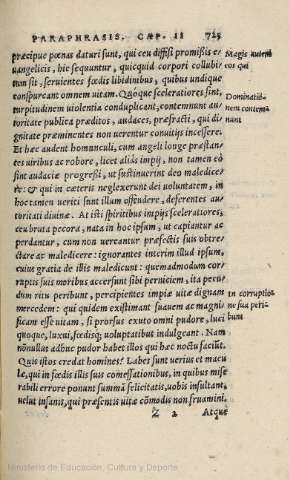 PARAPHRASIS. CAP. II 725
præcipue pœnas daturi sunt, qui ceu diffisi promissis e-
uangelicis, hic sequuntur, quicquid corpori collubi-
tum sit, seruientes fœdis libidinibus, quibus undique
conspurcant omnem uitam. Quóque sceleratiores sint,
turpitudinem uiolentia conduplicant, contemnunt au-
toritate publica præditos, audaces, præfracti, qui di-
gnitate præeminentes non uerentur conuitijs incessere.
Et hæc audent homunculi, cum angeli longe præstan-
tes uiribus ac robore, licet alias impij, non tamen eò
sint audaciæ progressi, ut sustinuerint deo maledice-
re: & qui in cæteris neglexerunt dei uoluntatem, in
hoc tamen ueriti sunt illum offendere, deferentes au-
toritati diuinæ. At isti spiritibus impijs sceleratiores,
ceu bruta pecora, nata in hoc ipsum, ut capiantur ac
perdantur, cum non uereantur præfectis suis obtre-
ctare ac maledicere: ignorantes interim illud ipsum,
cuius gratia de istis maledicunt: quemadmodum cor-
ruptis suis moribus accersunt sibi perniciem, ita pecu-
dum ritu peribunt, percipientes impiæ uitæ dignam
mercedem: qui quidem existimant suauem ac magni-
ficam esse uitam, si prorsus exuto omni pudore, luci
quoque, luxui, fœdisq; uoluptatibus indulgeant. Nam
nōnullus adhuc pudor habet illos qui hæc noctu faciūt.
Quis istos credat homines? Labes sunt uerius et macu
læ, qui in fœdis illis suis comessationibus, in quibus mise
rabili errore ponunt summā felicitatis, uobis insultant,
uelut insanis, qui præsentis uitæ cōmodis non fruamini.
Z 2 Atque
Magis autem
eos qui
Dominatio-
nem contem-
nant
In corruptio-
ne sua peri-
bunt
Ministerio de Educación, Cultura y Deporte